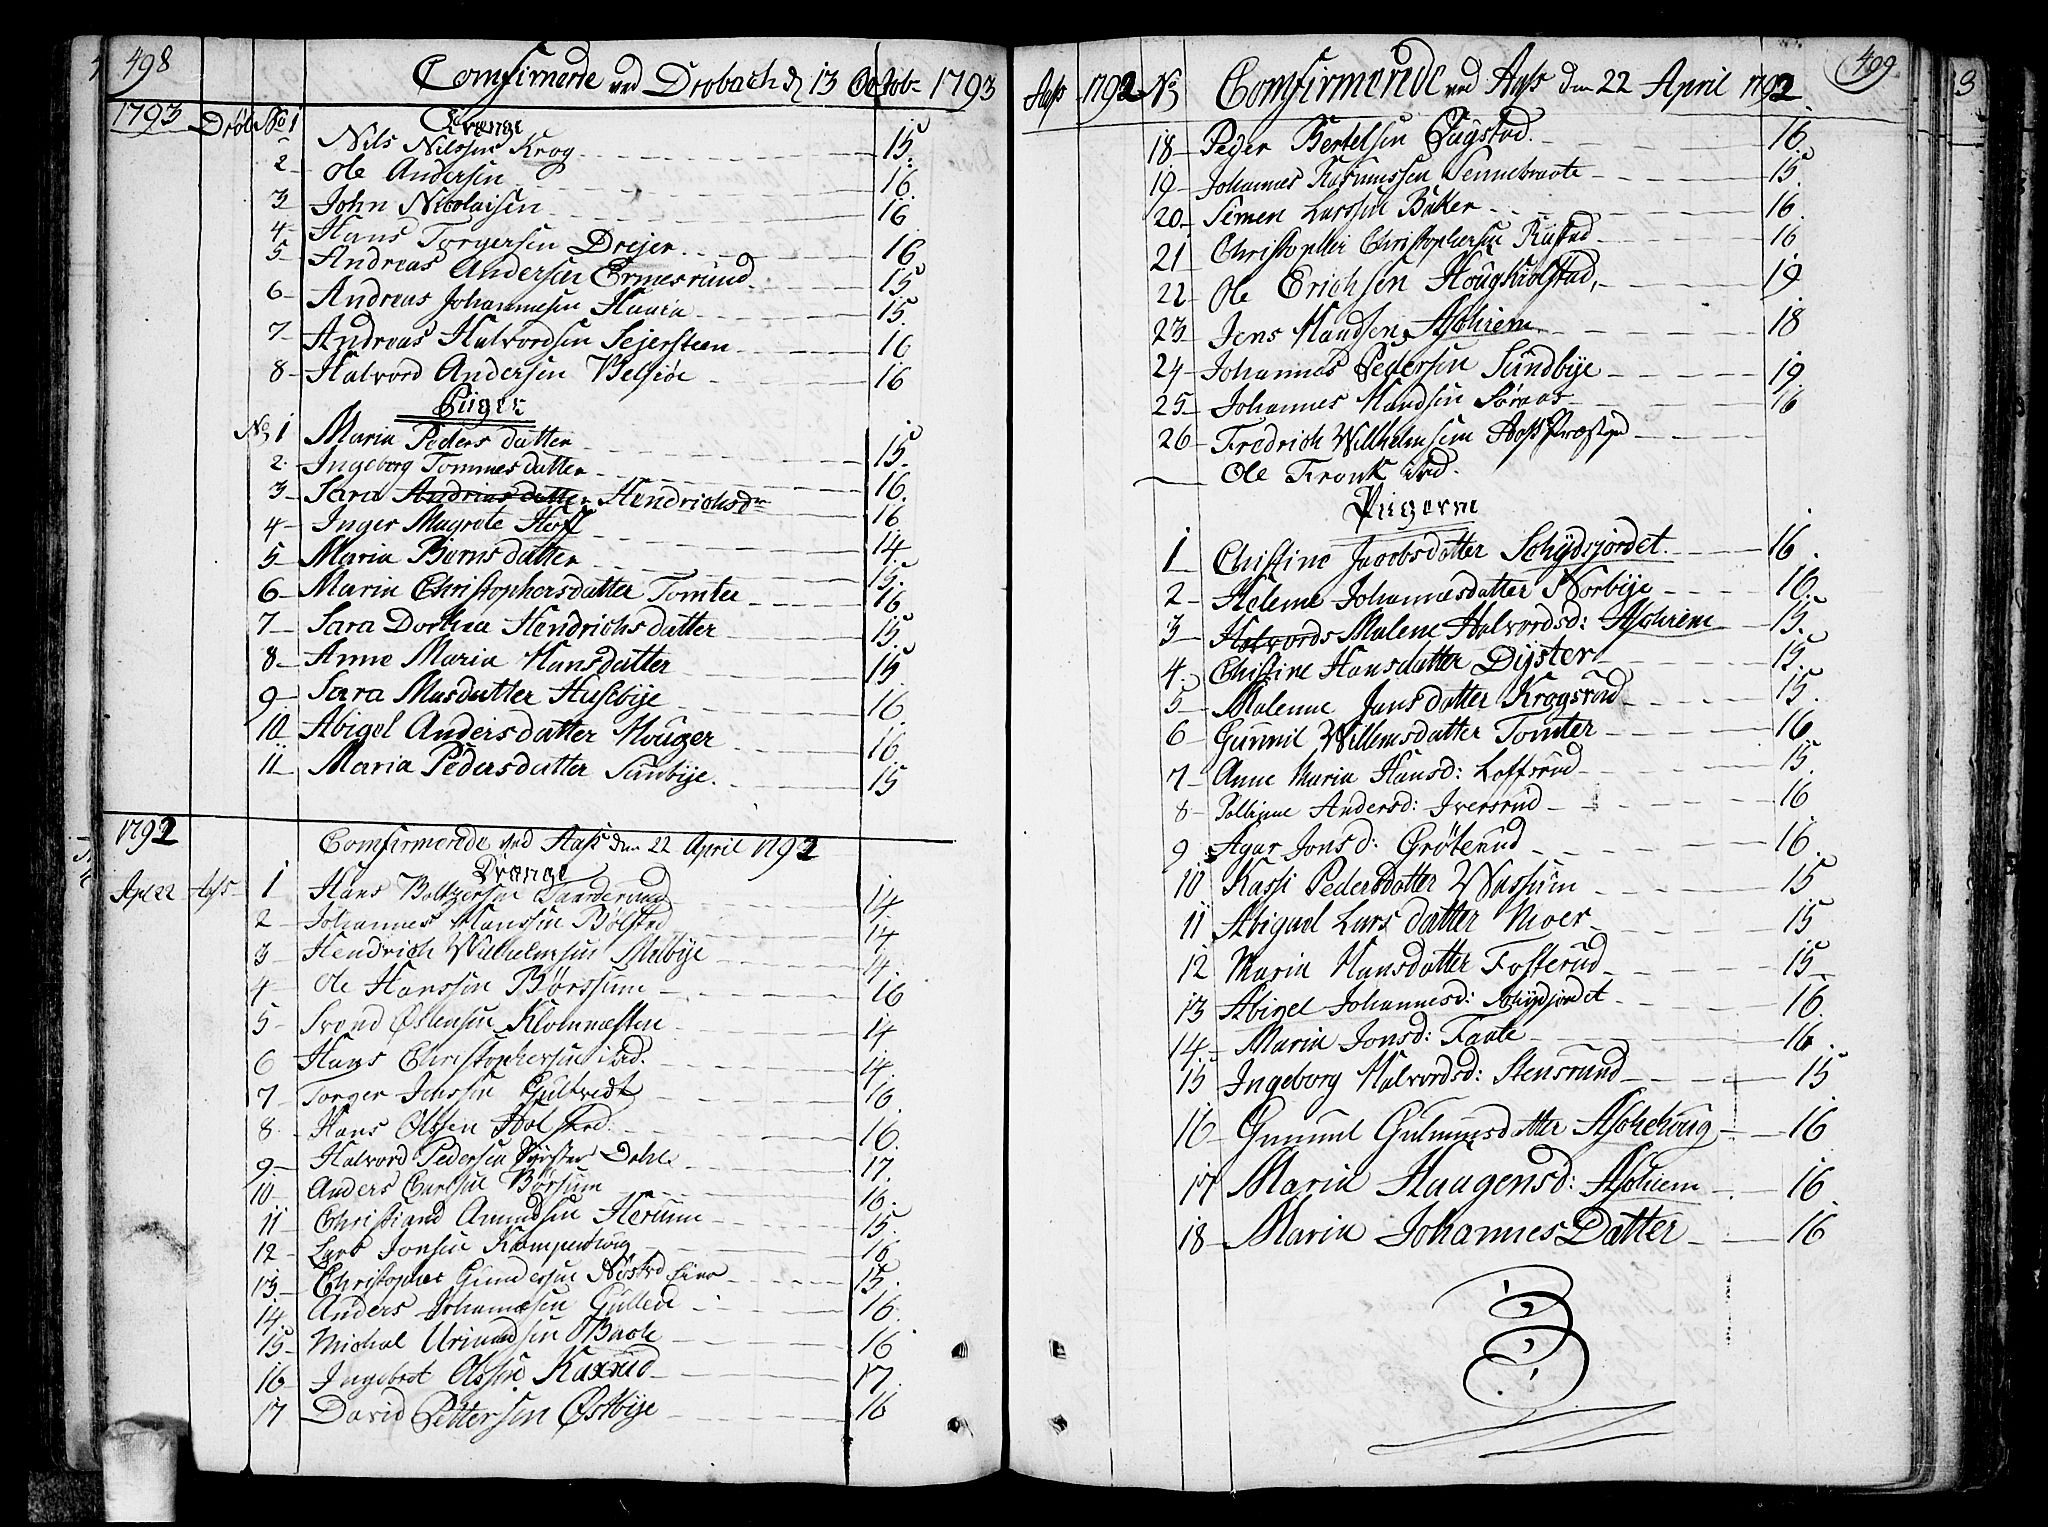 498
Comfirmerde ved Drøbach d 13 Octob- 1793
1793 Drøb
Drænge
No 1 Nils Nilssen Krog 15
2 Ole Andersen 16
3 John Nicolaisen 16
4 Hans Torgersen Drejer 16
5 Andreas Andersen Ermesrund 15
6 Andreas Johannesen Haara 15
7 Andreas Halvordsen Sejersteen 16
8 Halvord Andersen Belsiøe 16
Piiger
No 1 Maria Peders datter 15
2 Ingeborg Tommesdatter 16
3 Sara Andriasdatter Hendrichsdr 16
4 Inger Magrete Hoff 14
5 Maria Biørnsdatter 15
6 Maria Christophersdatter Tomter 16
7 Sara Dorthea Hendrichsdatter 15
8 Anne Maria Hansdatter 15
9 Sara Masdatter Husebye 16
10 Abigel Andersdatter Houger 16
11 Maria Pedersdatter Sundbye 15
1792 Comfirmerede ved Aass den 22 April 1792
Drænge
Apl 22 Aass 1 Hans Boltzersen Taarderud 14
2 Johannes Hanssen Bølstad 14
3 Hendrich Wilhelmsen Melbye 14
4 Ole Hanssen Børssum 16
5 Svend Østensen Klommesten 14
6 Hans Christophersen ibid. 14
7 Torger Jenssen Gultvedt 16
8 Hans Olssen Holstad 16
9 Halvord Pedersen Dyster Dahle 17
10 Anders Carlsen Børsum 16
11 Christiand Amundsen Herumn 15
12 Lars Jonsen Kampenhoug 16
13 Christopher Gundersen Nøstvd Eier 15
14 Anders Johannesen Gullen 16
15 Michal Urimdsen Bach 16
16 Ingebret Olssen Kaxrud 17
17 David Pettersen Østbye 16
499
Aass 1792 No Comfirmerede ved Aass den 22 April 1792
18 Peder Bertelsen Bugstad 16
19 Johannes Rasmussen Sennebraate 15
20 Simen Larssen Bakker 16
21 Christopher Christophersen Rustad 16
22 Ole Erichsen Hougskiolstad 19
23 Jens Handsen Aschiem 18
24 Johannes Pedersen Sundbye 19
25 Johannes Handsen Søraas 16
26 Fredrich Willhelmsen Aass Præstgd
Ole Fronk ibid.
Piigerne
1 Christine Jacobsdatter Schydsjordet 16
2 Helene Johannesdatter Norbye 16
3 Halvords Malene Halvordsd: Aschiem 15
4 Christine Hansdatter Dyster 15
5 Malenne Jansdatter Krogsrud 15
6 Gunnil Willemsdatter Tomter 16
7 Anne Maria Hansd: Loffsrud 15
8 Polbiene Andersd: Iversrud 16
9 Agar Jonsd: Grøterud 16
10 Kassi Pedersdatter Wassum 15
11 Abigael Larsdatter Moer 15
12 Maria Hansdatter Fosterud 15
13 Abigel Johannesd: Schydjordet 16
14 Maria Jonsd: Faale 16
15 Ingeborg Halvordsd: Stensrund 15
16 Gunnul Gulmunsdatter Aschehoug 16
17 Maria Haagensd: Aschiem 16
18 Maria JohannesDatter 16